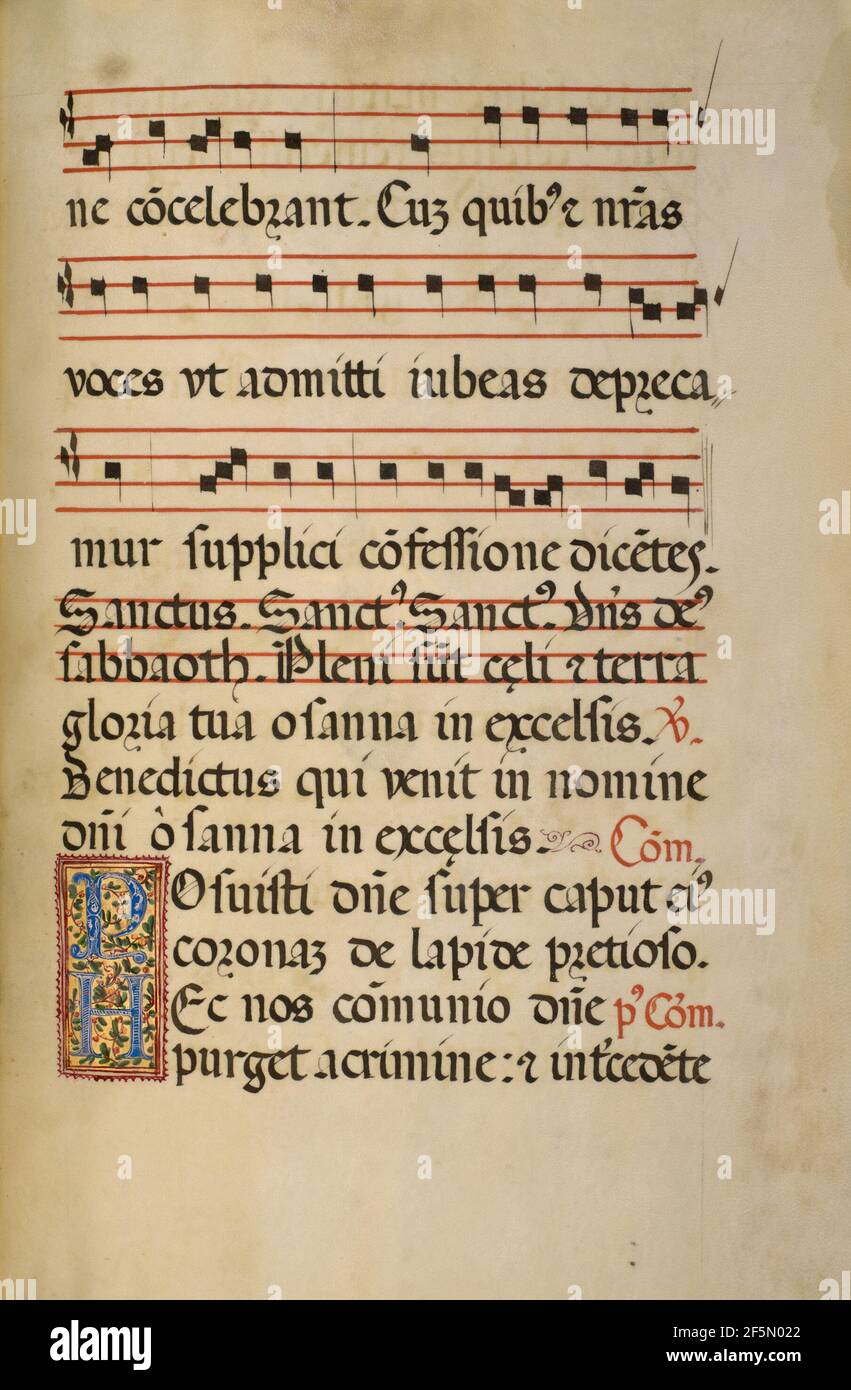 ne cōcelebrant. Cuȝ quibꝰ ⁊ nr̄as
voces vt admitti iubeas depreca⸗
mur ſupplici cōfeſſione dicētes.
Sanctus. Sanctꝰ. Sanctꝰ. Dn̄s deꝰ
ſabbaoth. Pleni ſūt cęli ⁊ terra
gloria tua oſanna in excelſis. ℟.
Benedictus qui venit in nomine
dn̄i oſanna in excęlſis. Cōm.
POſuiſti dn̄e ſuper caput eiꝰ
coronaȝ de lapide pretioſo.
HEc nos cōmunio dn̄e pꝰ Cōm.
purget a crimine: ⁊ int̄cedēte
alamy
a
Image ID: 2F5N022
www.alamy.com